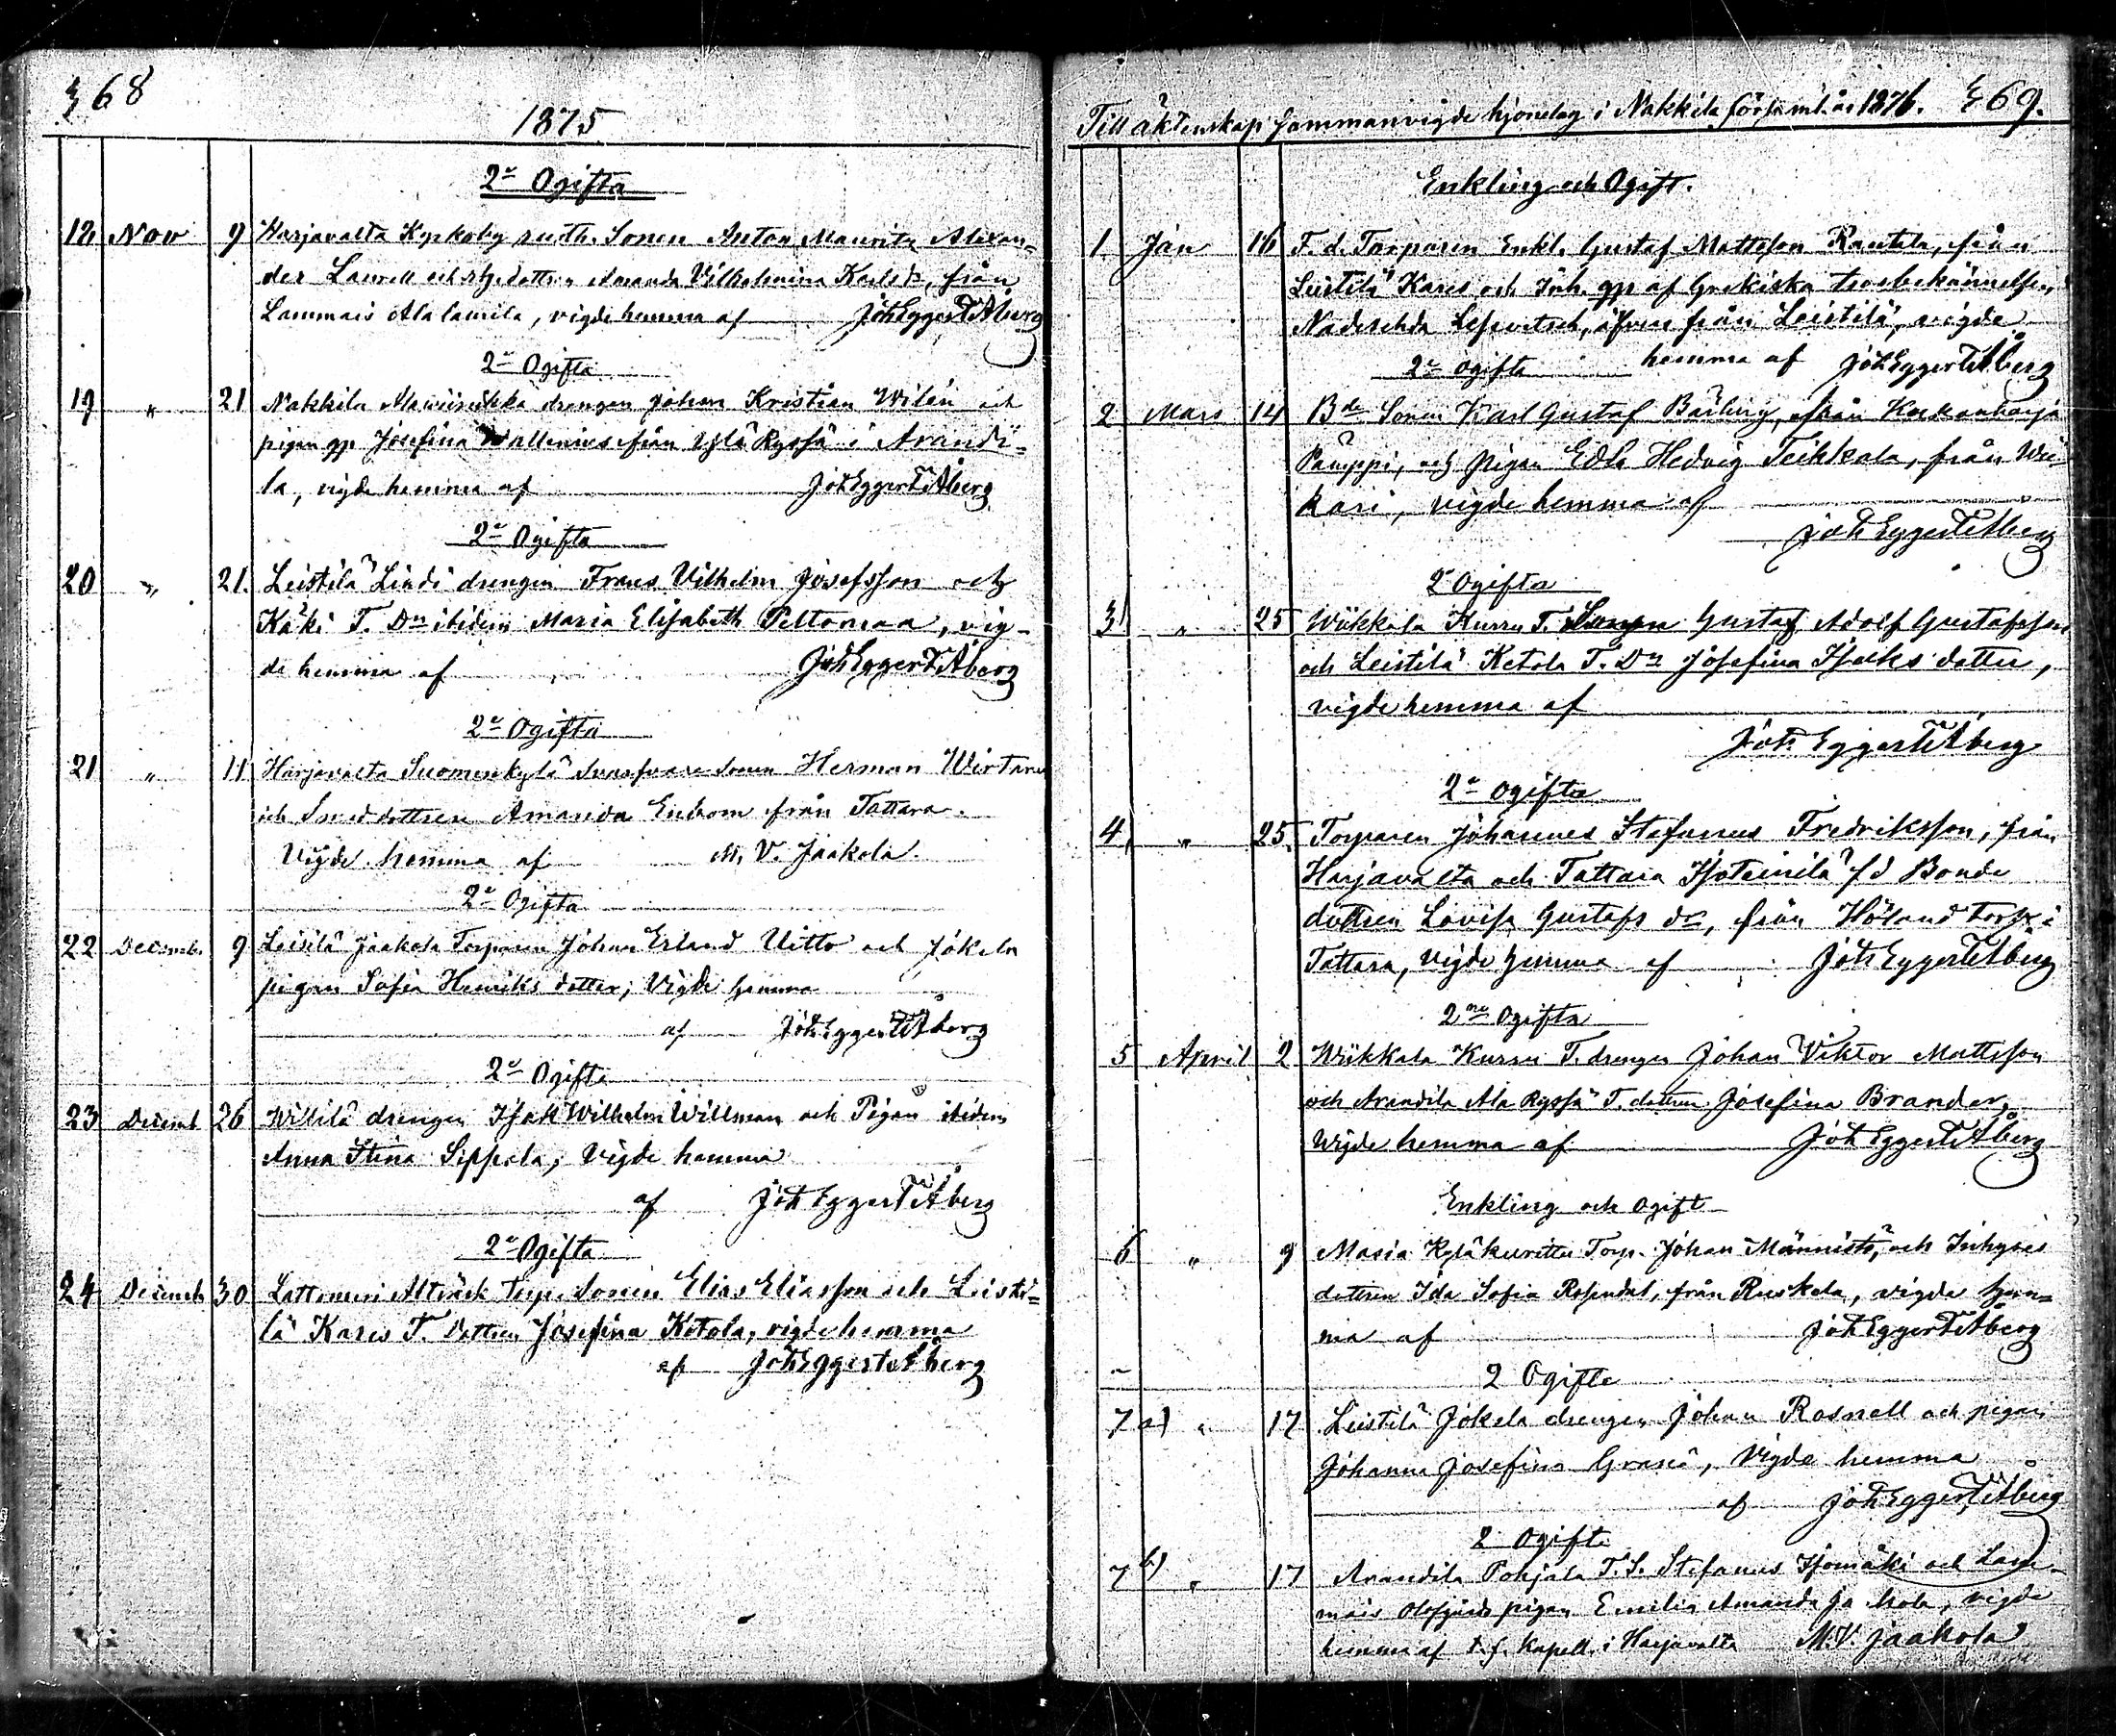 368
1875
2ne Ogifta
18 Nov 9 Harjavalta Kyrkoby Sonen Anton Mauritz Alexan=
der Laurell och dottren Amanda Vilhelmina Karls dr, från
Lammais Alalamila, vigde hemma af Joh Eggert Åberg
2ne Ogifta
19 " 21 Nakkila drengen Johan Kristian Wilén och
pigan Josefina Wallenius från Ylä Ryssä i Arandi=
la, vigde hemma af Joh Eggert Åberg
2ne Ogifta
20 " 21. Leistilä Lindi drengen Frans Vilhelm Josefsson och
Käki T. Dn ibidem Maria Elisabeth Peltomaa, vig-
de hemma af Joh Eggert Åberg
2ne Ogifta
21 " 11 Harjavalta Suomenkylä Sonen Herman Wirtanen
och Smeddottren Amanda från Tattara.
Vigde hemma af M. V. Jaakola.
2ne Ogifta
22 Decemb. 9 Leistilä Jaakola Torparen Johan Erland Uitto och Jokela
pigan Sofia Henriks dotter; Vigde hemma
af Joh Eggert Åberg
2ne Ogifta
23 Decemb 26 Willilä drengen Isak Wilhelm Willman och Pigan ibidem
Anna Stina Seppälä; Vigde hemma
af Joh Eggert Åberg
2ne Ogifta
24 Decemb 30 Lattomeri Torp. Sonen Elias Eliasson och Leisti=
lä Kares T. Dottren Josefina Ketola, vigde hemma
af Joh Eggert Åberg
Till äktenskap sammanvigde hjonelag i Nakkila församl. år 1876. 369.
Enkling och Ogift.
1. Jan 16 F. d. Torparen Enkl. Gustaf Mattsson Rantala, från
Leistilä Kares och Inh. gp af Grekiska trosbekännelsen,
Nadeschda äfven från Leistilä, vigde
hemma af Joh Eggert Åberg
2ne Ogifta
2 Mars 14 Bde Sonen Karl Gustaf från
Pamppi, och Pigan Edla Hedvig Teikkala, från Wii-
kari, vigde hemma af
Joh Eggert Åberg
2 Ogifta
3 " 25 Wiikkala Kurru T. Sonen Gustaf Adolf Gustafsson
och Leistilä Ketola T. Dn Josefina Isaks dotter,
vigde hemma af
Joh Eggert Åberg
2ne Ogifta
4 " 25. Torparen Johannes Stefanus Fredriksson, från
Harjavalta och Tattara Isoteinilä f d Bonde
dottren Lovisa Gustafs dr, från torp i
Tattara, vigde hemma af Joh Eggert Åberg
2ne Ogifta
5 April 2 Wiikkala Kurru T. drengen Johan Viktor Mattsson
och Arandila Ala Ryssä T. dottren Josefina Brander,
Wigde hemma af Joh Eggert Åberg
Enkling och Ogift
6 " 9 Masia Kyläkurittu Torp. Johan Männistö, och Inhyses
dottren Ida Sofia Rosendal, från Ruskela, vigde hem=
ma af Joh Eggert Åberg
2 Ogifta
7 a) " 17 Leistilä Jokela drengen Johan Rosnell och pigan
Johanna Josefina vigde hemma
af Joh Eggert Åberg
2 Ogifta
7 b) " 17 Arandila Pohjala T. S. Stefanus Isomäki och Lam-
mais Olofgård pigan Emilia Amanda vigde
hemma af t. f. Kapell. i Harjavalta M. V. Jaakola